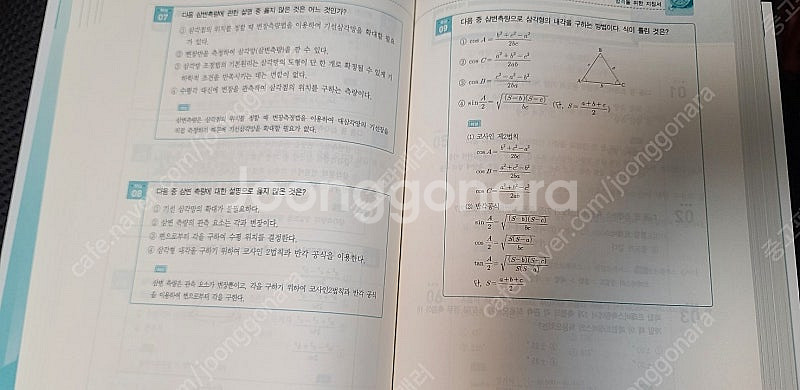 합격을 위한 지침서
핵심
07 다음 삼변측량에 관한 설명 중 옳지 않은 것은 어느 것인가?
① 삼각점의 위치를 정할 때 변장측정법을 이용하여 기선삼각망을 확대할 필요
가 있다.
② 변장만을 측정하여 삼각망(삼변측량)을 짤 수 있다.
③ 삼각망 조정법의 기본원리는 삼각망의 도형이 단 한 개로 확정될 수 있게 기
하학적 조건을 만족시키는 데는 변함이 없다.
④ 수평각 대신에 변장을 관측하여 삼각점의 위치를 구하는 측량이다.
해설
삼변측량은 삼각점의 위치를 정할 때 변장측정법을 이용하여 대삼각망의 기선장을
직접 측정하기 때문에 기선삼각망을 확대할 필요가 없다.
핵심
08 다음 중 삼변 측량에 대한 설명으로 옳지 않은 것은?
① 기선 삼각망의 확대가 불필요하다.
② 삼변 측량의 관측 요소는 각과 변장이다.
③ 변으로부터 각을 구하여 수평 위치를 결정한다.
④ 삼각형 내각을 구하기 위하여 코사인 2법칙과 반각 공식을 이용한다.
해설
삼변 측량은 관측 요소가 변장뿐이고, 각을 구하기 위하여 코사인2법칙과 반각 공식
을 이용하여 변으로부터 각을 구한다.
핵심
09 다음 중 삼변측량으로 삼각형의 내각을 구하는 방법이다. 식이 틀린 것은?
① cos A = (b²+c²−a²)/2bc
② cos C = (a²+b²−c²)/2ab
③ cos B = (c²−a²−b²)/2ab
④ sin A/2 = √((S−b)(S−c)/bc) (단, S = (a+b+c)/2)
B
A
C
해설
(1) 코사인 제2법칙
cos A = (b²+c²−a²)/2bc
cos B =
cos C =
(2) 반각공식
sin A/2 = √((S−b)(S−c)/bc)
cos A/2 = √(S(S−a)/bc)
tan A/2 = √((S−b)(S−c)/S(S−a))
단, S = (a+b+c)/2
Joonggonara
cafe.naver.com/joonggonara